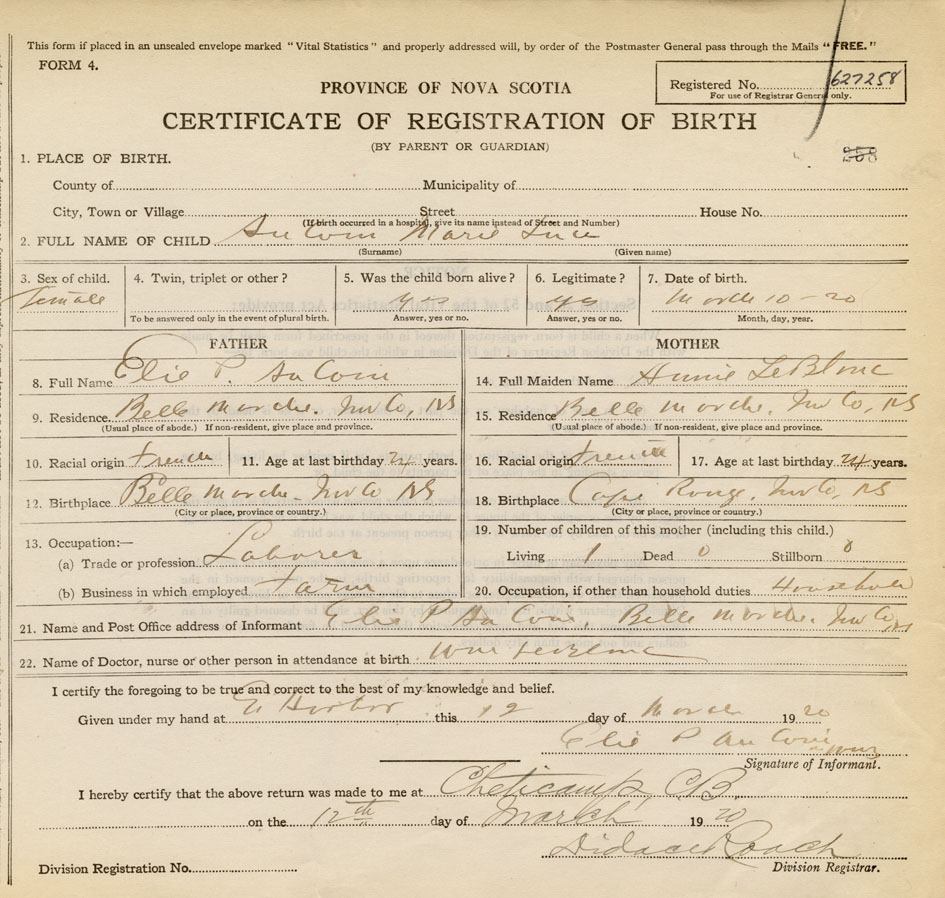 This form if placed in an unsealed envelope marked "Vital Statistics" and properly addressed will, by order of the Postmaster General pass through the Mails "FREE."
FORM 4.
PROVINCE OF NOVA SCOTIA
Registered No. 627258
For use of Registrar General only.
CERTIFICATE OF REGISTRATION OF BIRTH
(BY PARENT OR GUARDIAN)
1. PLACE OF BIRTH.
258
County of Municipality of
City, Town or Village Street House No.
(If birth occurred in a hospital, give its name instead of Street and Number)
2. FULL NAME OF CHILD Au Coin Marie Luce
(Surname) (Given name)
3. Sex of child. 4. Twin, triplet or other? 5. Was the child born alive? 6. Legitimate? 7. Date of birth.
female yes yes March 10-20
To be answered only in the event of plural birth. Answer, yes or no. Answer, yes or no. Month, day, year.
FATHER MOTHER
8. Full Name Elie P. Au Coin 14. Full Maiden Name Annie LeBlanc
9. Residence. Belle Marche. Inv Co, NS 15. Residence Belle Marche. Inv Co, NS
(Usual place of abode.) If non-resident, give place and province. (Usual place of abode.) If non-resident, give place and province.
10. Racial origin French 11. Age at last birthday 24 years. 16. Racial origin French 17. Age at last birthday 24 years.
12. Birthplace Belle Marche. Inv Co NS 18. Birthplace Cape Rouge, Inv Co, NS
(City or place, province or country.) (City or place, province or country.)
13. Occupation:— 19. Number of children of this mother (including this child.)
(a) Trade or profession Laborer Living 1 Dead 0 Stillborn 0
(b) Business in which employed farm 20. Occupation, if other than household duties Household
21. Name and Post Office address of Informant Elie P Au Coin, Belle Marche. Inv Co, NS
22. Name of Doctor, nurse or other person in attendance at birth Wm LeBlanc
I certify the foregoing to be true and correct to the best of my knowledge and belief.
Given under my hand at E Harbor this 12 day of March 1920
Elie P Au Coin
Signature of Informant.
I hereby certify that the above return was made to me at Cheticamp, C.B.
on the 12th day of March 1920
Didace Roach
Division Registration No. Division Registrar.